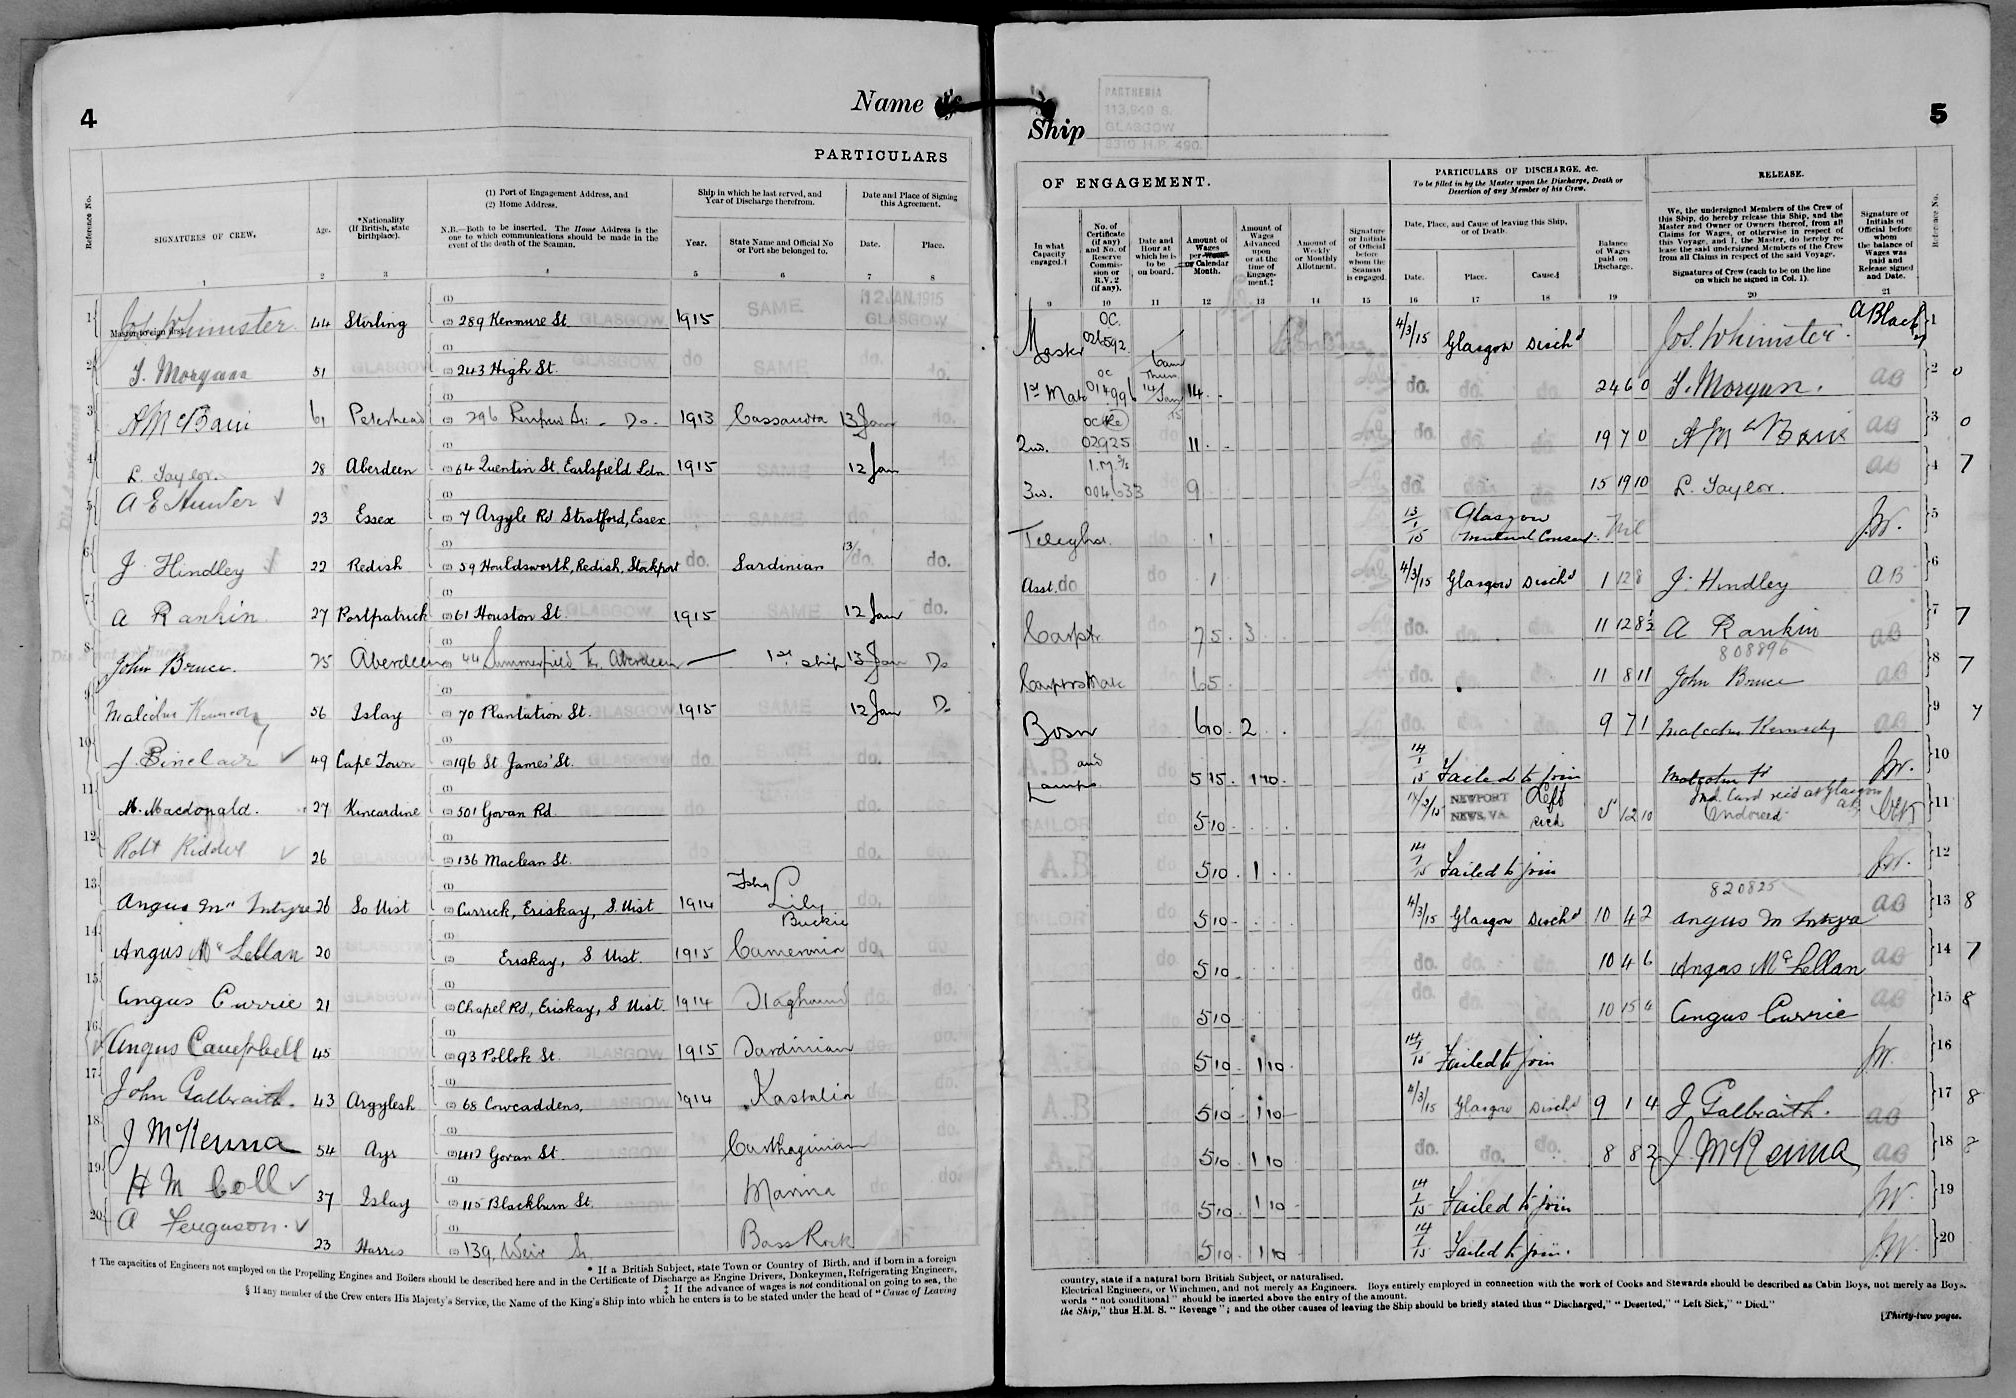 4
Name of
Ship
PARTHENIA
GLASGOW
H.P. 490.
5
PARTICULARS
OF ENGAGEMENT.
PARTICULARS OF DISCHARGE, &c.
To be filled in by the Master upon the Discharge, Death or Desertion of any Member of his Crew.
RELEASE.
Reference No.
SIGNATURES OF CREW.
Age.
*Nationality (If British, state birthplace).
(1) Port of Engagement Address, and
(2) Home Address.
N.B.—Both to be inserted. The Home Address is the one to which communications should be made in the event of the death of the Seaman.
Ship in which he last served, and Year of Discharge therefrom.
Year.
State Name and Official No or Port she belonged to.
Date and Place of Signing this Agreement.
Date.
Place.
In what Capacity engaged.†
No. of Certificate (if any) and No. of Reserve Commission or R.V. 2 (if any).
Date and Hour at which he is to be on board.
Amount of Wages per Week or Calendar Month.
Amount of Wages Advanced upon or at the time of Engagement.‡
Amount of Weekly or Monthly Allotment.
Signature or Initials of Official before whom the Seaman is engaged.
Date, Place, and Cause of leaving this Ship, or of Death.
Date.
Place.
Cause.§
Balance of Wages paid on Discharge.
We, the undersigned Members of the Crew of this Ship, do hereby release this Ship, and the Master and Owner or Owners thereof, from all Claims for Wages, or otherwise in respect of this Voyage, and I, the Master, do hereby release the said undersigned Members of the Crew from all Claims in respect of the said Voyage.
Signatures of Crew (each to be on the line on which he signed in Col. 1).
Signature or Initials of Official before whom the balance of Wages was paid and Release signed and Date.
Reference No.
1 2 3 4 5 6 7 8
9 10 11 12 13 14 15 16 17 18 19 20 21
1 Jos. Whimster 44 Stirling (1) (2) 289 Kenmure St. GLASGOW 1915 SAME 12 JAN. 1915 GLASGOW Master OC. 4/3/15 Glasgow Disch'd Jos. Whimster. A Black 1
2 T. Morgan 51 GLASGOW (1) (2) 243 High St. GLASGOW do SAME do. do. 1st Mate OC 14 do. do. do. 24 6 0 T. Morgan. AB 2 0
3 A McBain 61 Peterhead (1) (2) 296 Renfrew St. Do. 1913 Cassandra 13 Jan do. 2nd. 02925 11 do. do. do. 19 7 0 A McBain AB 3 0
4 L. Taylor. 28 Aberdeen (1) (2) 64 Quentin St. Earlsfield Ldn. 1915 SAME 12 Jan 3rd. 004633 9 do. do. do. 15 19 10 L. Taylor. AB 4 7
5 A E Hunter 23 Essex (1) (2) 7 Argyle Rd Stratford, Essex SAME do. 1 13/1/15 Glasgow Mutual Consent. Nil J.W. 5
6 J. Hindley 22 Redish (1) (2) 59 Houldsworth, Redish, Stockport do. Sardinian 13/do. do. Asst. do do 1 4/3/15 Glasgow Disch'd 1 12 8 J. Hindley AB 6
7 A Rankin 27 Portpatrick (1) (2) 61 Houston St. GLASGOW 1915 SAME 12 Jan do. Carptr do 75. 3 do. do. do. 11 12 8½ A Rankin AB 7 7
808896
8 John Bruce. 25 Aberdeen (1) (2) 44 Summerfield Tr. Aberdeen 1st ship 13 Jan Do Carptrs Mate do 65. do. do. do. 11 8 11 John Bruce AB 8 7
9 Malcolm Kennedy 56 Islay (1) (2) 70 Plantation St. GLASGOW 1915 SAME 12 Jan Do Bosn do 60. 2 do. do. do. 9 7 1 Malcolm Kennedy AB 9
10 J. Sinclair 49 Cape Town (1) (2) 196 St James' St. GLASGOW do SAME do. A.B and Lamps do. 5 15. 1 10. 14/1/15 Failed to join J.W. 10
11 M. Macdonald. 27 Kincardine (1) (2) 501 Govan Rd do SAME do. SAILOR do. 5 10 NEWPORT NEWS, VA. Left 5 12 10 Endorsed 11
12 Robt Kidder 26 GLASGOW (1) (2) 136 Maclean St. do do. A.B. do. 5 10. 1 14/1/15 Failed to join J.W. 12
820825
13 Angus McIntyre 26 So Uist (1) (2) Currick, Eriskay, S. Uist 1914 Lily Buckie do. SAILOR do. 5 10. 4/3/15 Glasgow Disch'd 10 4 2 Angus McIntyre AB 13 8
14 Angus McLellan 20 GLASGOW (1) (2) Eriskay, S Uist. 1915 Cameronia do. do do. 5 10 do. do. do. 10 4 6 Angus McLellan AB 14 7
15 Angus Currie 21 GLASGOW (1) (2) Chapel Rd, Eriskay, S Uist. 1914 Staghound do. do. do. 5 10 do. do. do. 10 15 Angus Currie AB 15 8
16 Angus Campbell 45 (1) (2) 93 Pollok St. GLASGOW 1915 Sardinian do. do. A.B do 5 10 1 10. 14/1/15 Failed to join J.W. 16
17 John Galbraith. 43 Argylesh (1) (2) 68 Cowcaddens. GLASGOW 1914 Kastalia do. do. A.B do. 5 10 1 10 4/3/15 Glasgow Disch'd 9 1 4 J Galbraith. AB 17 8
18 J McKenna 54 Ayr (1) (2) 412 Govan St. GLASGOW Carthaginian do. do. A.B do. 5 10 1 10 do. do. do. 8 8 2 J. McKenna AB 18
19 H McColl 37 Islay (1) (2) 115 Blackburn St. Marina do do. A.B do 5 10 1 10 14/1/15 Failed to join J.W. 19
20 A Ferguson. 23 Harris (1) (2) 139, Weir St. Bass Rock 5 10 1 10 14/1/15 Failed to join. J.W. 20
* If a British Subject, state Town or Country of Birth, and if born in a foreign country, state if a natural born British Subject, or naturalised.
† The capacities of Engineers not employed on the Propelling Engines and Boilers should be described here and in the Certificate of Discharge as Engine Drivers, Donkeymen, Refrigerating Engineers, Electrical Engineers, or Winchmen, and not merely as Engineers. Boys entirely employed in connection with the work of Cooks and Stewards should be described as Cabin Boys, not merely as Boys.
‡ If the advance of wages is not conditional on going to sea, the words "not conditional" should be inserted above the entry of the amount.
§ If any member of the Crew enters His Majesty's Service, the Name of the King's Ship into which he enters is to be stated under the head of "Cause of Leaving the Ship," thus H.M.S. "Revenge"; and the other causes of leaving the Ship should be briefly stated thus "Discharged," "Deserted," "Left Sick," "Died."
[Thirty-two pages.